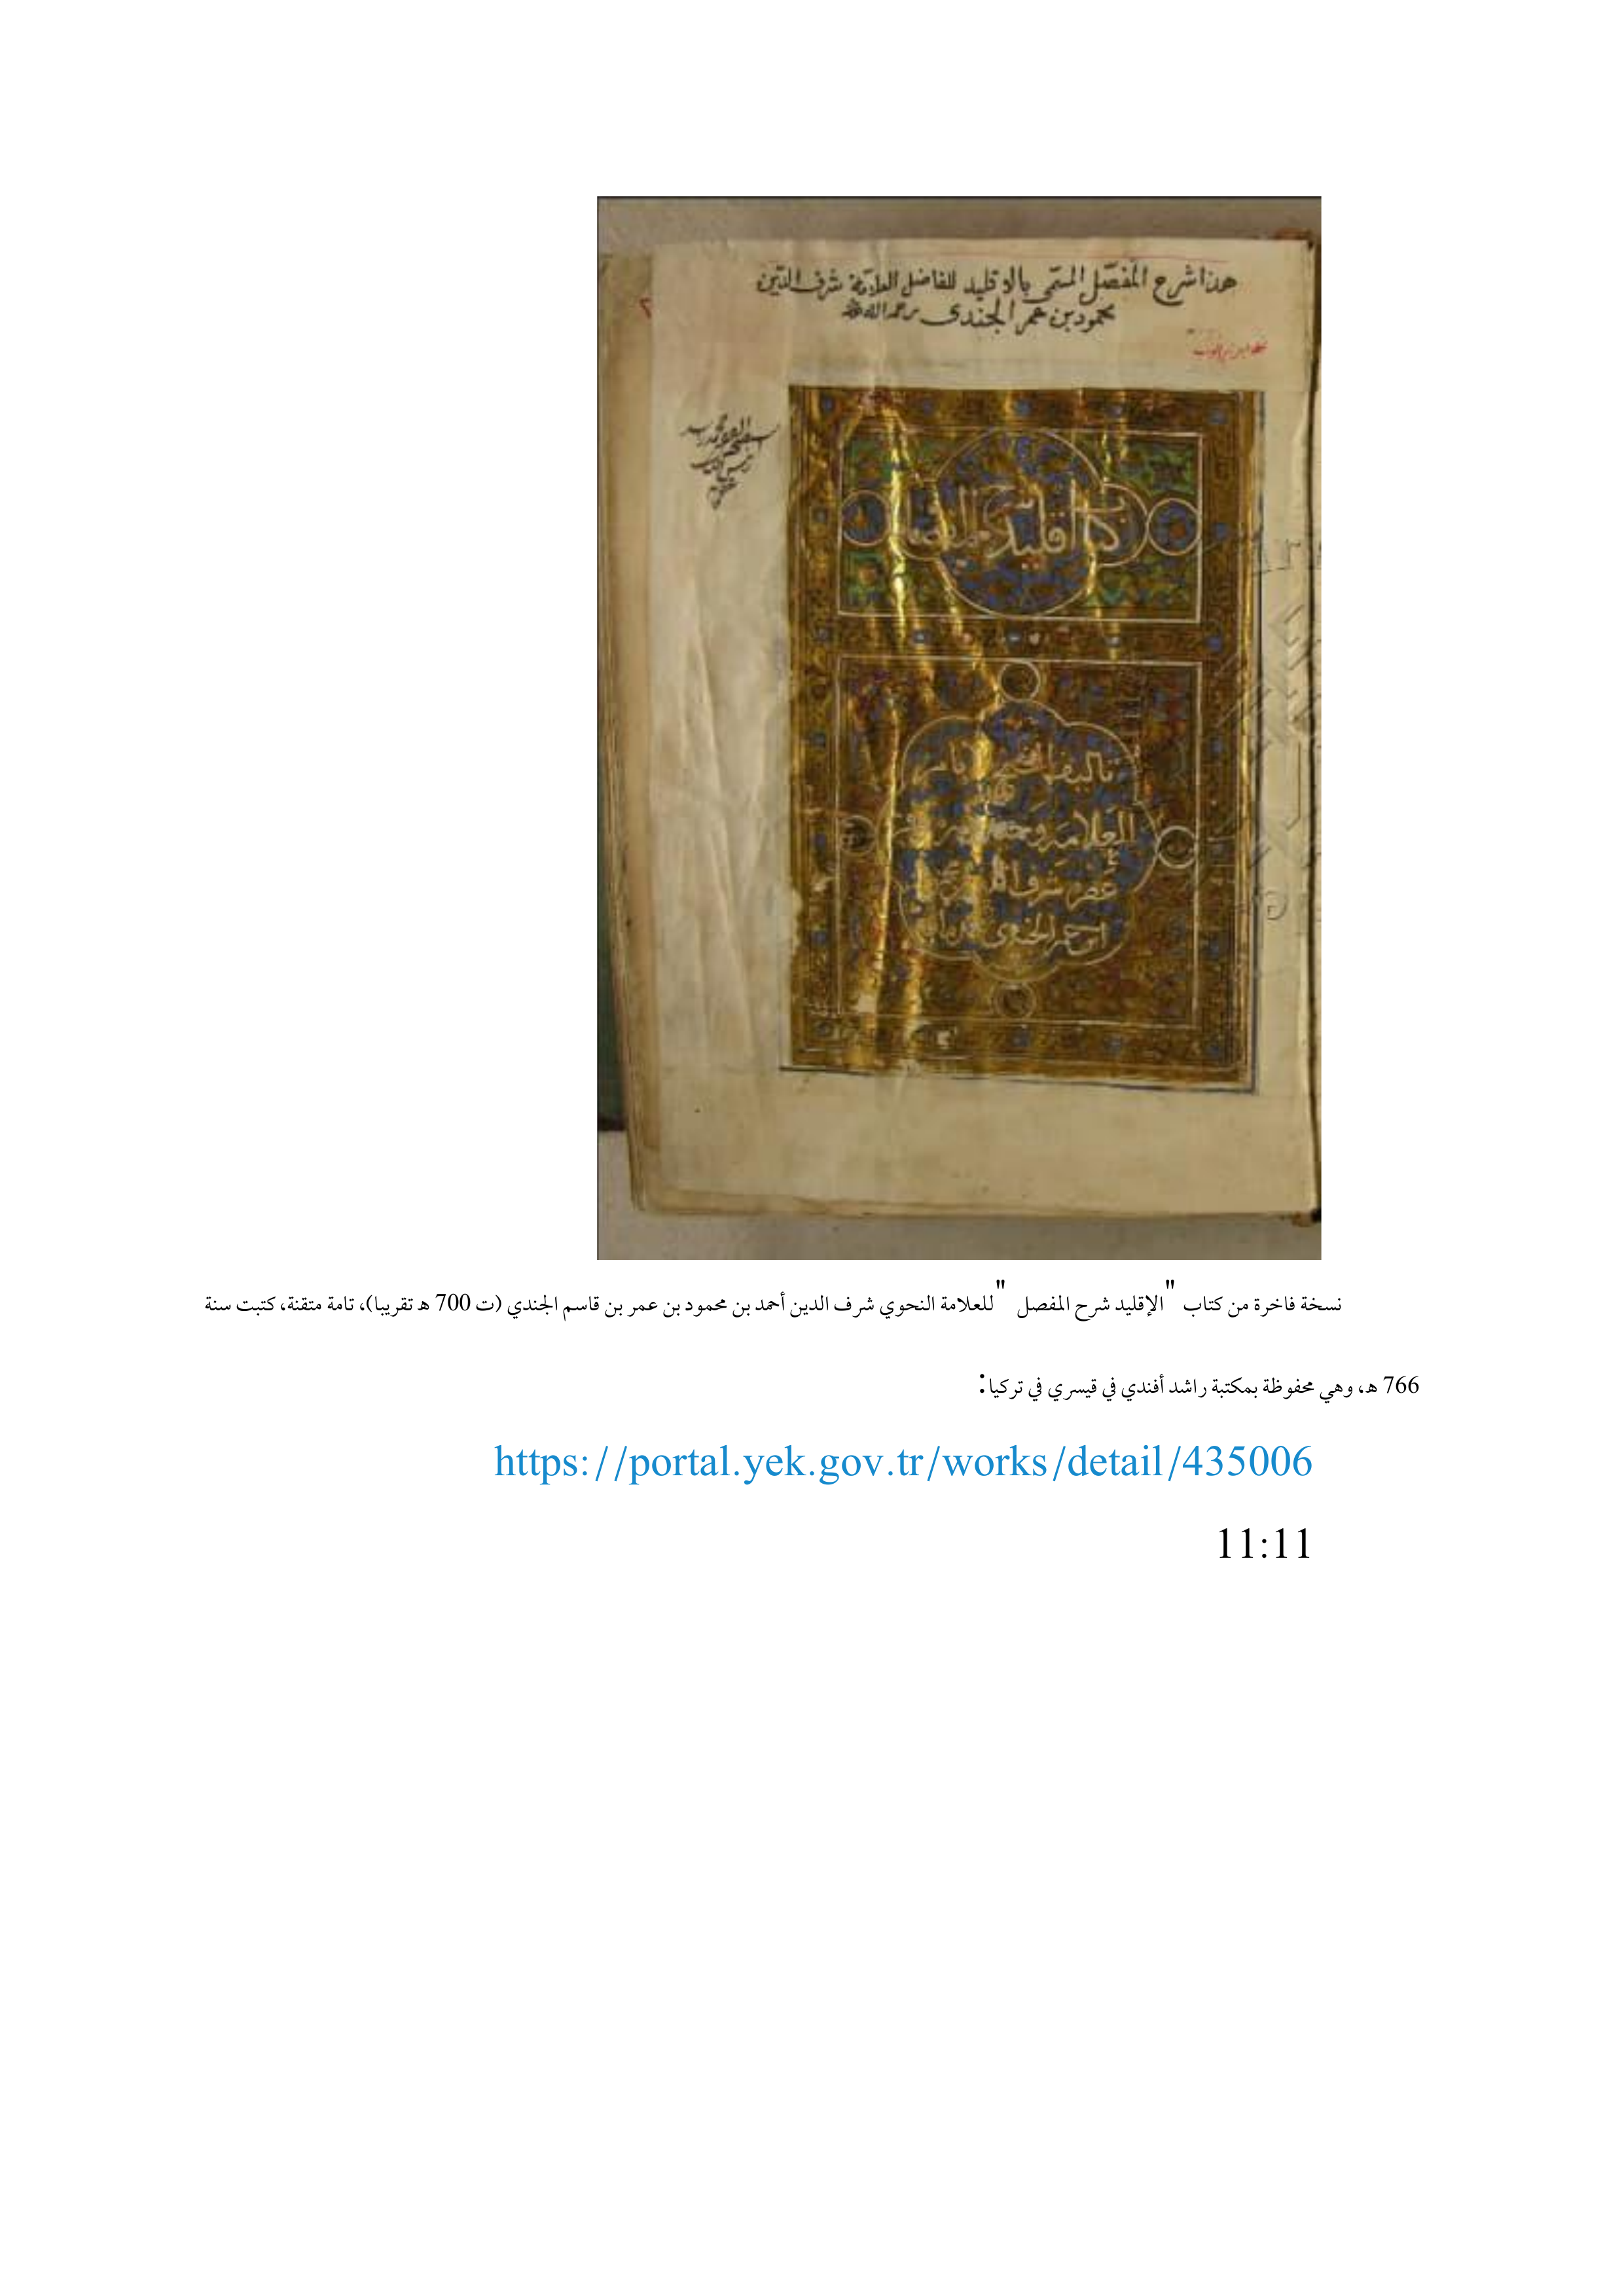 هذا شرح المفصّل المسمّى بالاقليد للفاضل العلامة شرف الدّين
محمود بن عمر الجندى رحمه الله
٢
كتاب اقليد شرح المفصل
تاليف الشيخ الامام
العلامة وحيد
عصره شرف
الجندى
نسخة فاخرة من كتاب "الإقليد شرح المفصل "للعلامة النحوي شرف الدين أحمد بن محمود بن عمر بن قاسم الجندي (ت 700 ه تقريبا)، تامة متقنة، كتبت سنة
766 ه، وهي محفوظة بمكتبة راشد أفندي في قيسري في تركيا:
https://portal.yek.gov.tr/works/detail/435006
11:11